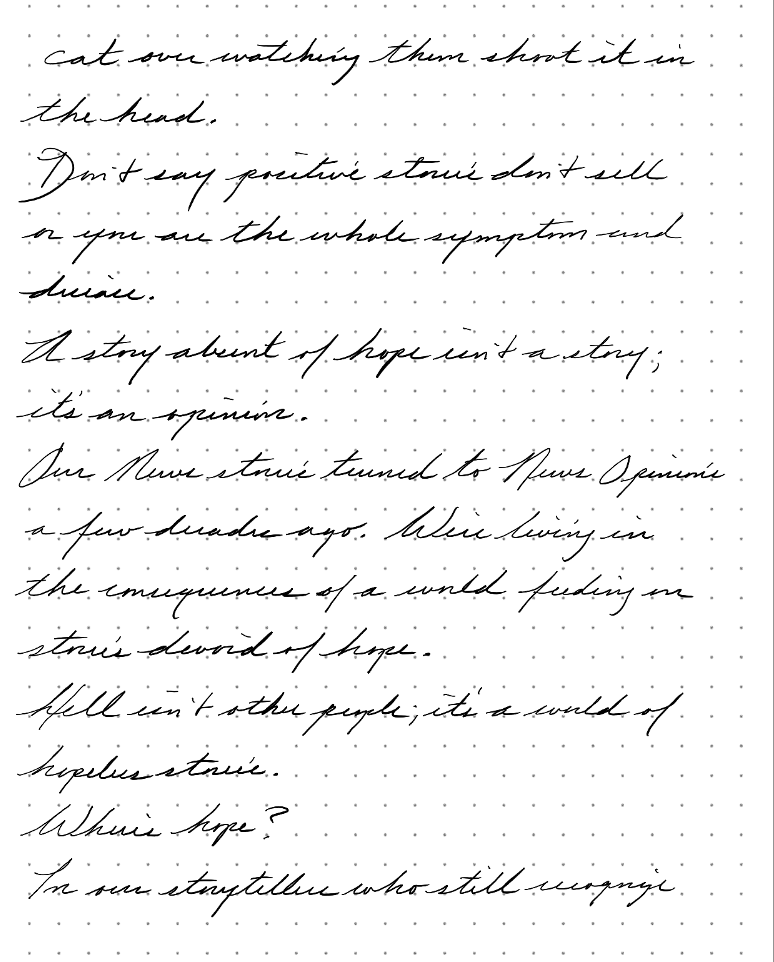 cat over watching them shoot it in
the head.
Don't say positive stories don't sell
or you are the whole symptom and
disease.
A story absent of hope isn't a story;
it's an opinion.
Our News stories turned to News Opinions
a few decades ago. We're living in
the consequences of a world feeding on
stories devoid of hope.
Hell isn't other people; it's a world of
hopeless stories.
Where's hope?
In our storytellers who still recognize